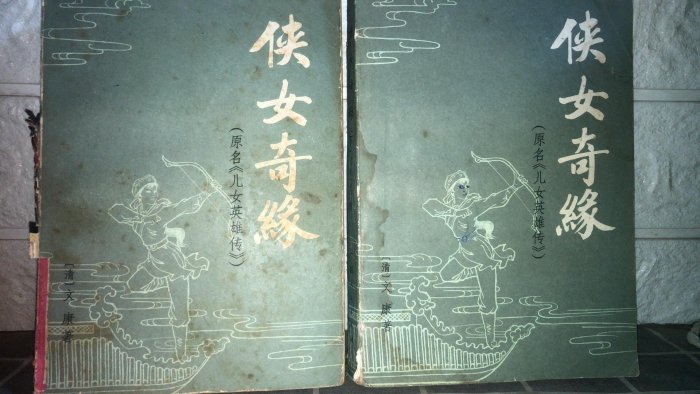 侠女奇緣
(原名《儿女英雄传》)
〔清〕文康著
侠女奇緣
(原名《儿女英雄传》)
〔清〕文康著